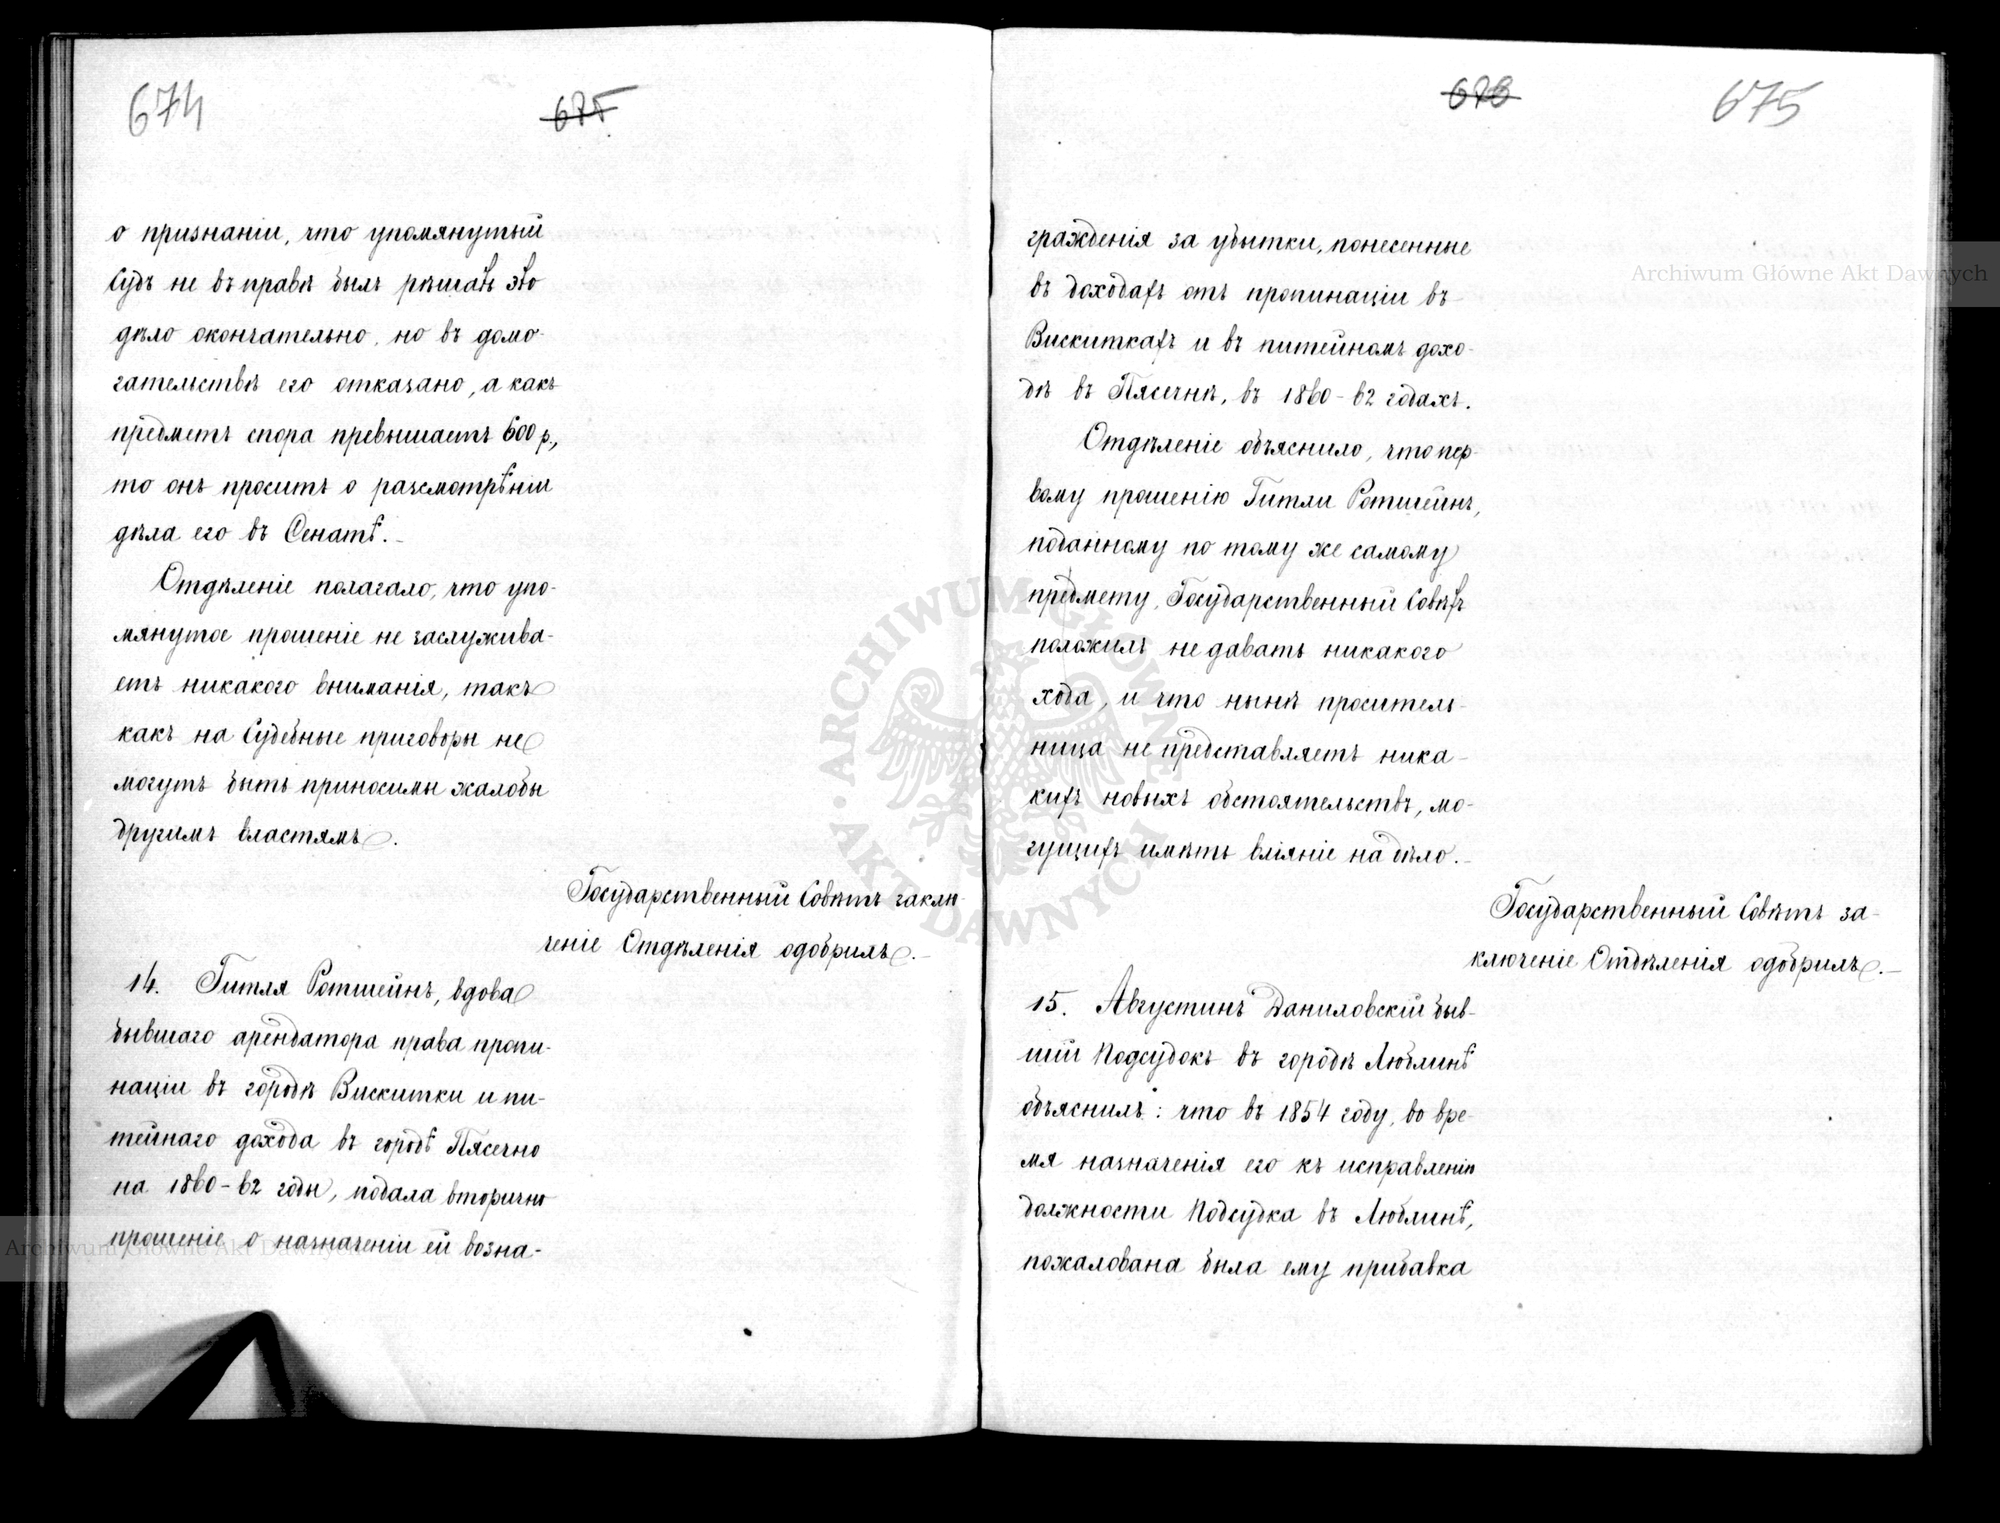 674
675
о признаніи, что упомянутый
Судъ не въ правѣ былъ рѣшать это
дѣло окончательно, но въ домо-
гательствѣ его отказано, а какъ
предметъ спора превышаетъ 600 р.,
то онъ проситъ о разсмотрѣніи
дѣла его въ Сенатѣ.
Отдѣленіе полагало, что упо-
мянутое прошеніе не заслужива-
етъ никакого вниманія, такъ
какъ на Судебные приговоры не
могутъ быть приносимы жалобы
другимъ властямъ.
Государственный Совѣтъ заклю-
ченіе Отдѣленія одобрилъ.
14. Гитля Ротшейнъ, вдова
бывшаго арендатора права пропи-
націи въ городѣ Вискитки и пи-
тейнаго дохода въ городѣ Пясечно
на 1860-62 годы, подала вторично
прошеніе о назначеніи ей возна-
675
граждения за убытки, понесенные
въ доходахъ отъ пропинаціи въ
Вискиткахъ и въ питейномъ дохо-
дѣ въ Пясечнѣ, въ 1860-62 годахъ.
Отдѣленіе объяснило, что пер-
вому прошенію Гитли Ротшейнъ,
поданному по тому же самому
предмету, Государственный Совѣтъ
положилъ не давать никакого
хода, и что нынѣ проситель-
ница не представляетъ ника-
кихъ новыхъ обстоятельствъ, мо-
гущихъ имѣть вліяніе на дѣло.
Государственный Совѣтъ за-
ключеніе Отдѣленія одобрилъ.
15. Августинъ Даниловскій быв-
шій Подсудокъ въ городѣ Люблинѣ
объяснилъ: что въ 1854 году, во вре-
мя назначенія его къ исправленію
должности Подсудка въ Люблинѣ,
пожалована была ему прибавка
Archiwum Główne Akt Dawnych
Archiwum Główne Akt Dawnych
ARCHIWUM GŁÓWNE AKT DAWNYCH